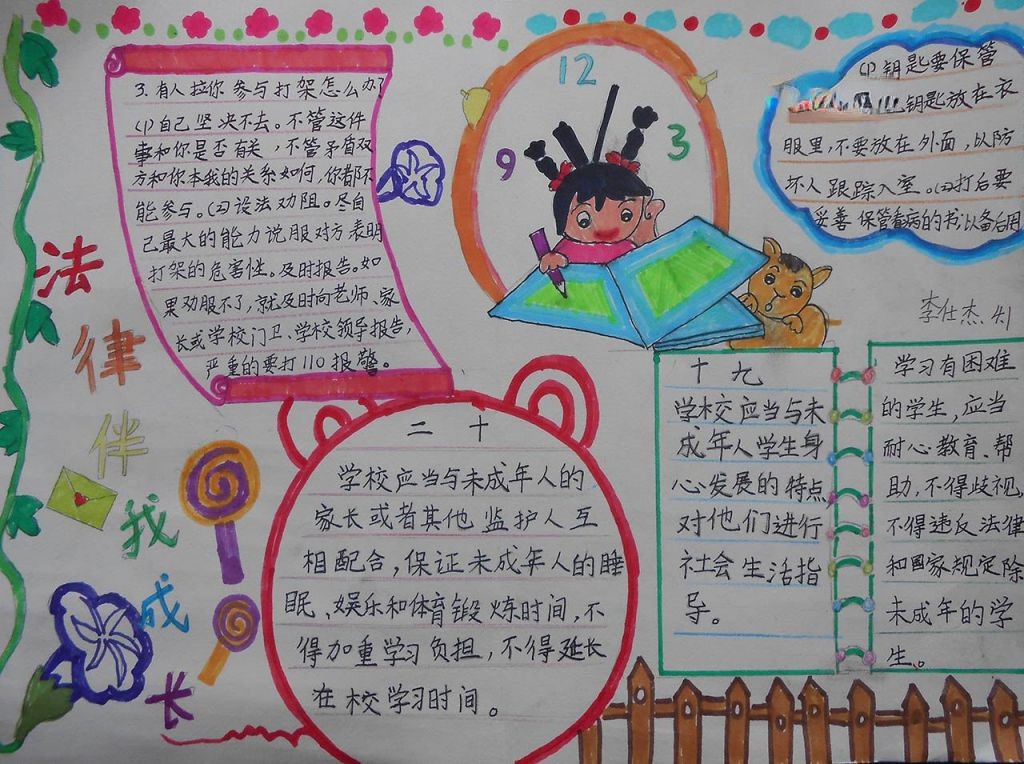 3.有人拉你参与打架怎么办?
(1)自己坚决不去。不管这件
事和你是否有关,不管矛盾双
方和你本我的关系如何,你都不
能参与。(2)设法劝阻。尽自
己最大的能力说服对方表明
打架的危害性。及时报告。如
果劝服不了,就及时向老师、家
长或学校门卫、学校领导报告,
严重的要打110报警。
12
9
3
(1)钥匙要保管
钥匙放在衣
服里,不要放在外面,以防
坏人跟踪入室。(2)打后要
妥善保管看病的书,以备后用
李仕杰
法
律
伴
我
成
长
二十
学校应当与未成年人的
家长或者其他监护人互
相配合,保证未成年人的睡
眠、娱乐和体育锻炼时间,不
得加重学习负担,不得延长
在校学习时间。
十九
学校应当与未
成年人学生身
心发展的特点
对他们进行
社会生活指
导。
学习有困难
的学生,应当
耐心教育、帮
助,不得歧视,
不得违反法律
和国家规定除
未成年的学
生。